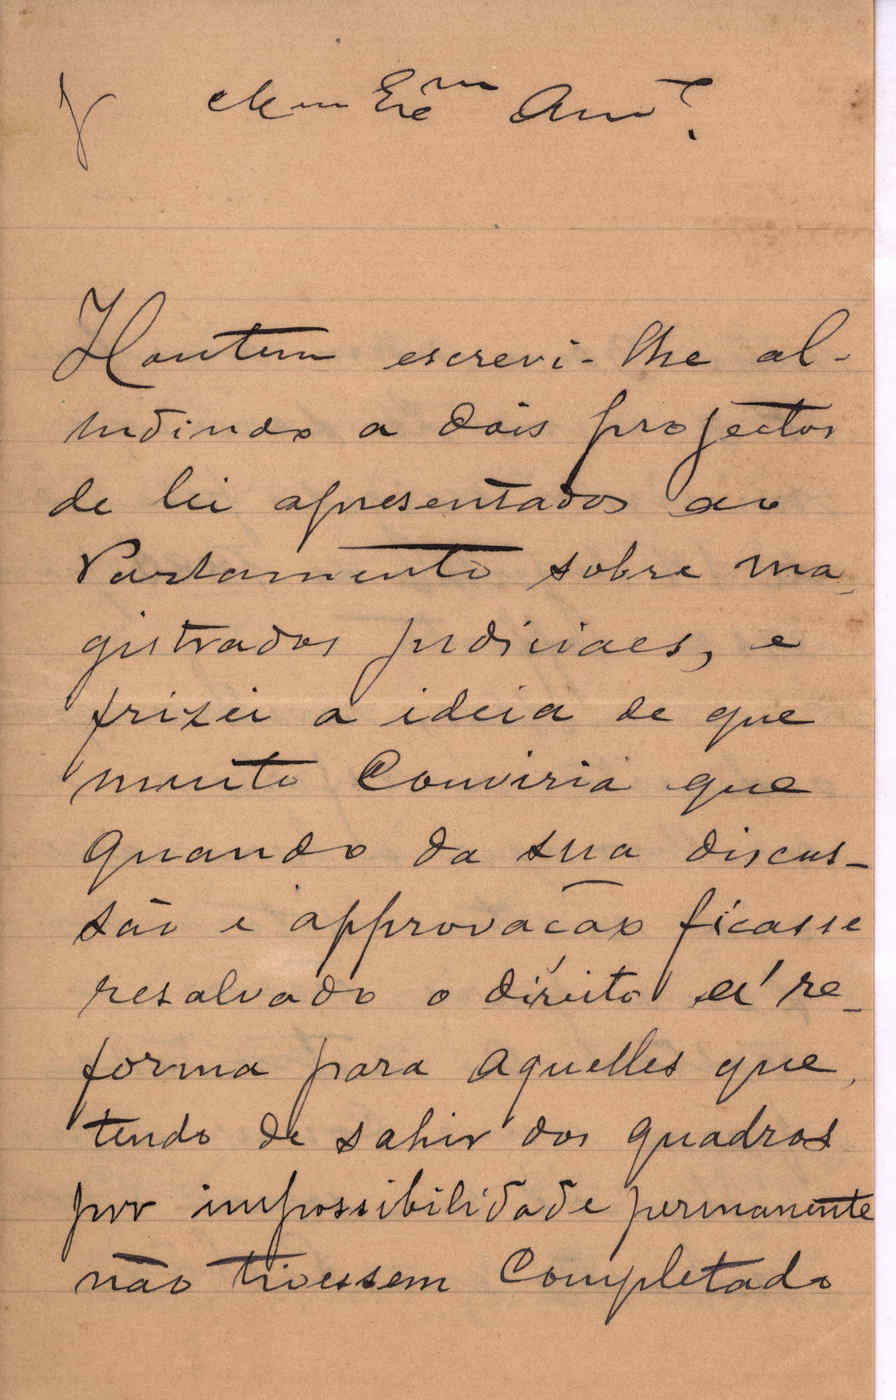 Meu Exmo Amo.
Hontem escrevi-lhe al-
ludindo a dois projectos
de lei apresentados ao
Parlamento sobre ma-
gistrados judiciaes, e
frizei a ideia de que
muito conviria que
quando da sua discus-
são e approvação ficasse
resalvado o direito á re-
forma para aquelles que,
tendo de sahir dos quadros
por impossibilidade permanente
não tivessem completado